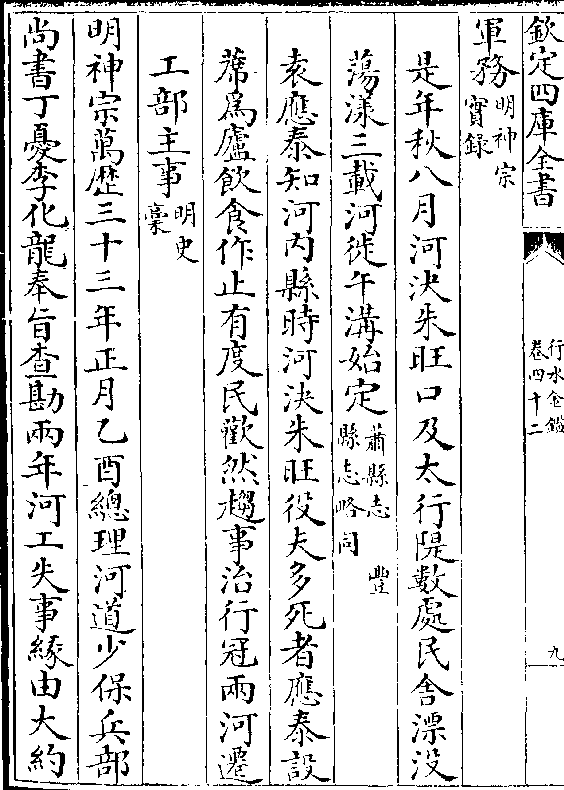 欽定四庫全書
行水金鑑
卷四十二
九
軍務明神宗
實錄
是年秋八月河決朱旺口及太行隄數處民舍漂没
蕩漾三載河徙午溝始定蕭縣志 豐
縣志略同
袁應泰知河内縣時河決朱旺役夫多死者應泰設
蓆爲廬飲食作止有度民歡然趨事治行冠兩河遷
工部主事明史
稾
明神宗萬歷三十三年正月乙酉總理河道少保兵部
尚書丁憂李化龍奉旨查勘兩年河工失事緣由大約